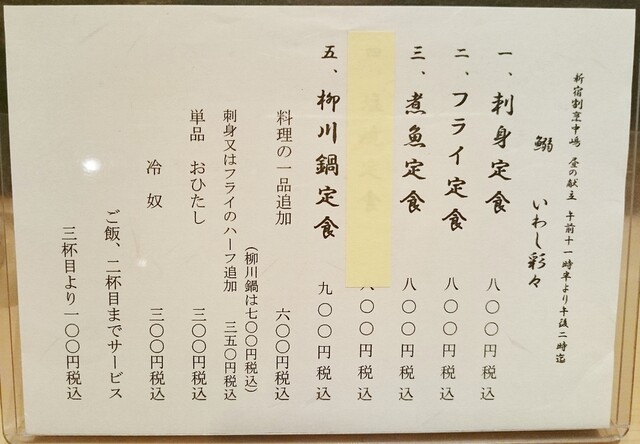 新宿割烹中嶋 昼の献立 午前十一時半より午後二時迄
鰯 いわし彩々
一、刺身定食 八〇〇円税込
二、フライ定食 八〇〇円税込
三、煮魚定食 八〇〇円税込
定食 八〇〇円税込
五、柳川鍋定食 九〇〇円税込
料理の一品追加 六〇〇円税込
(柳川鍋は七〇〇円税込)
刺身又はフライのハーフ追加 三五〇円税込
単品 おひたし 三〇〇円税込
冷奴 三〇〇円税込
ご飯、二杯目までサービス
三杯目より一〇〇円税込